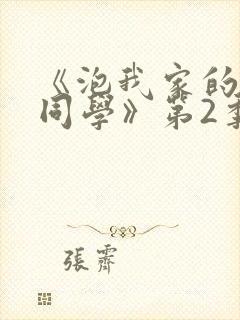 《泡我家的
同學》第2季
張霽